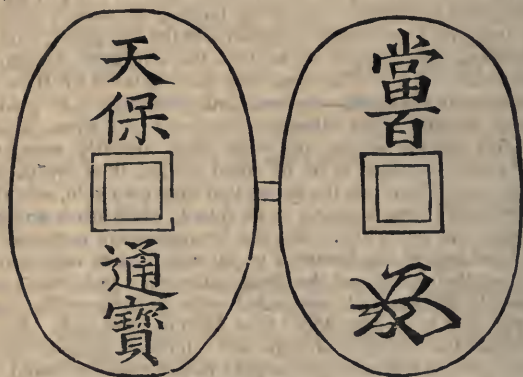 天保
通寶
當百